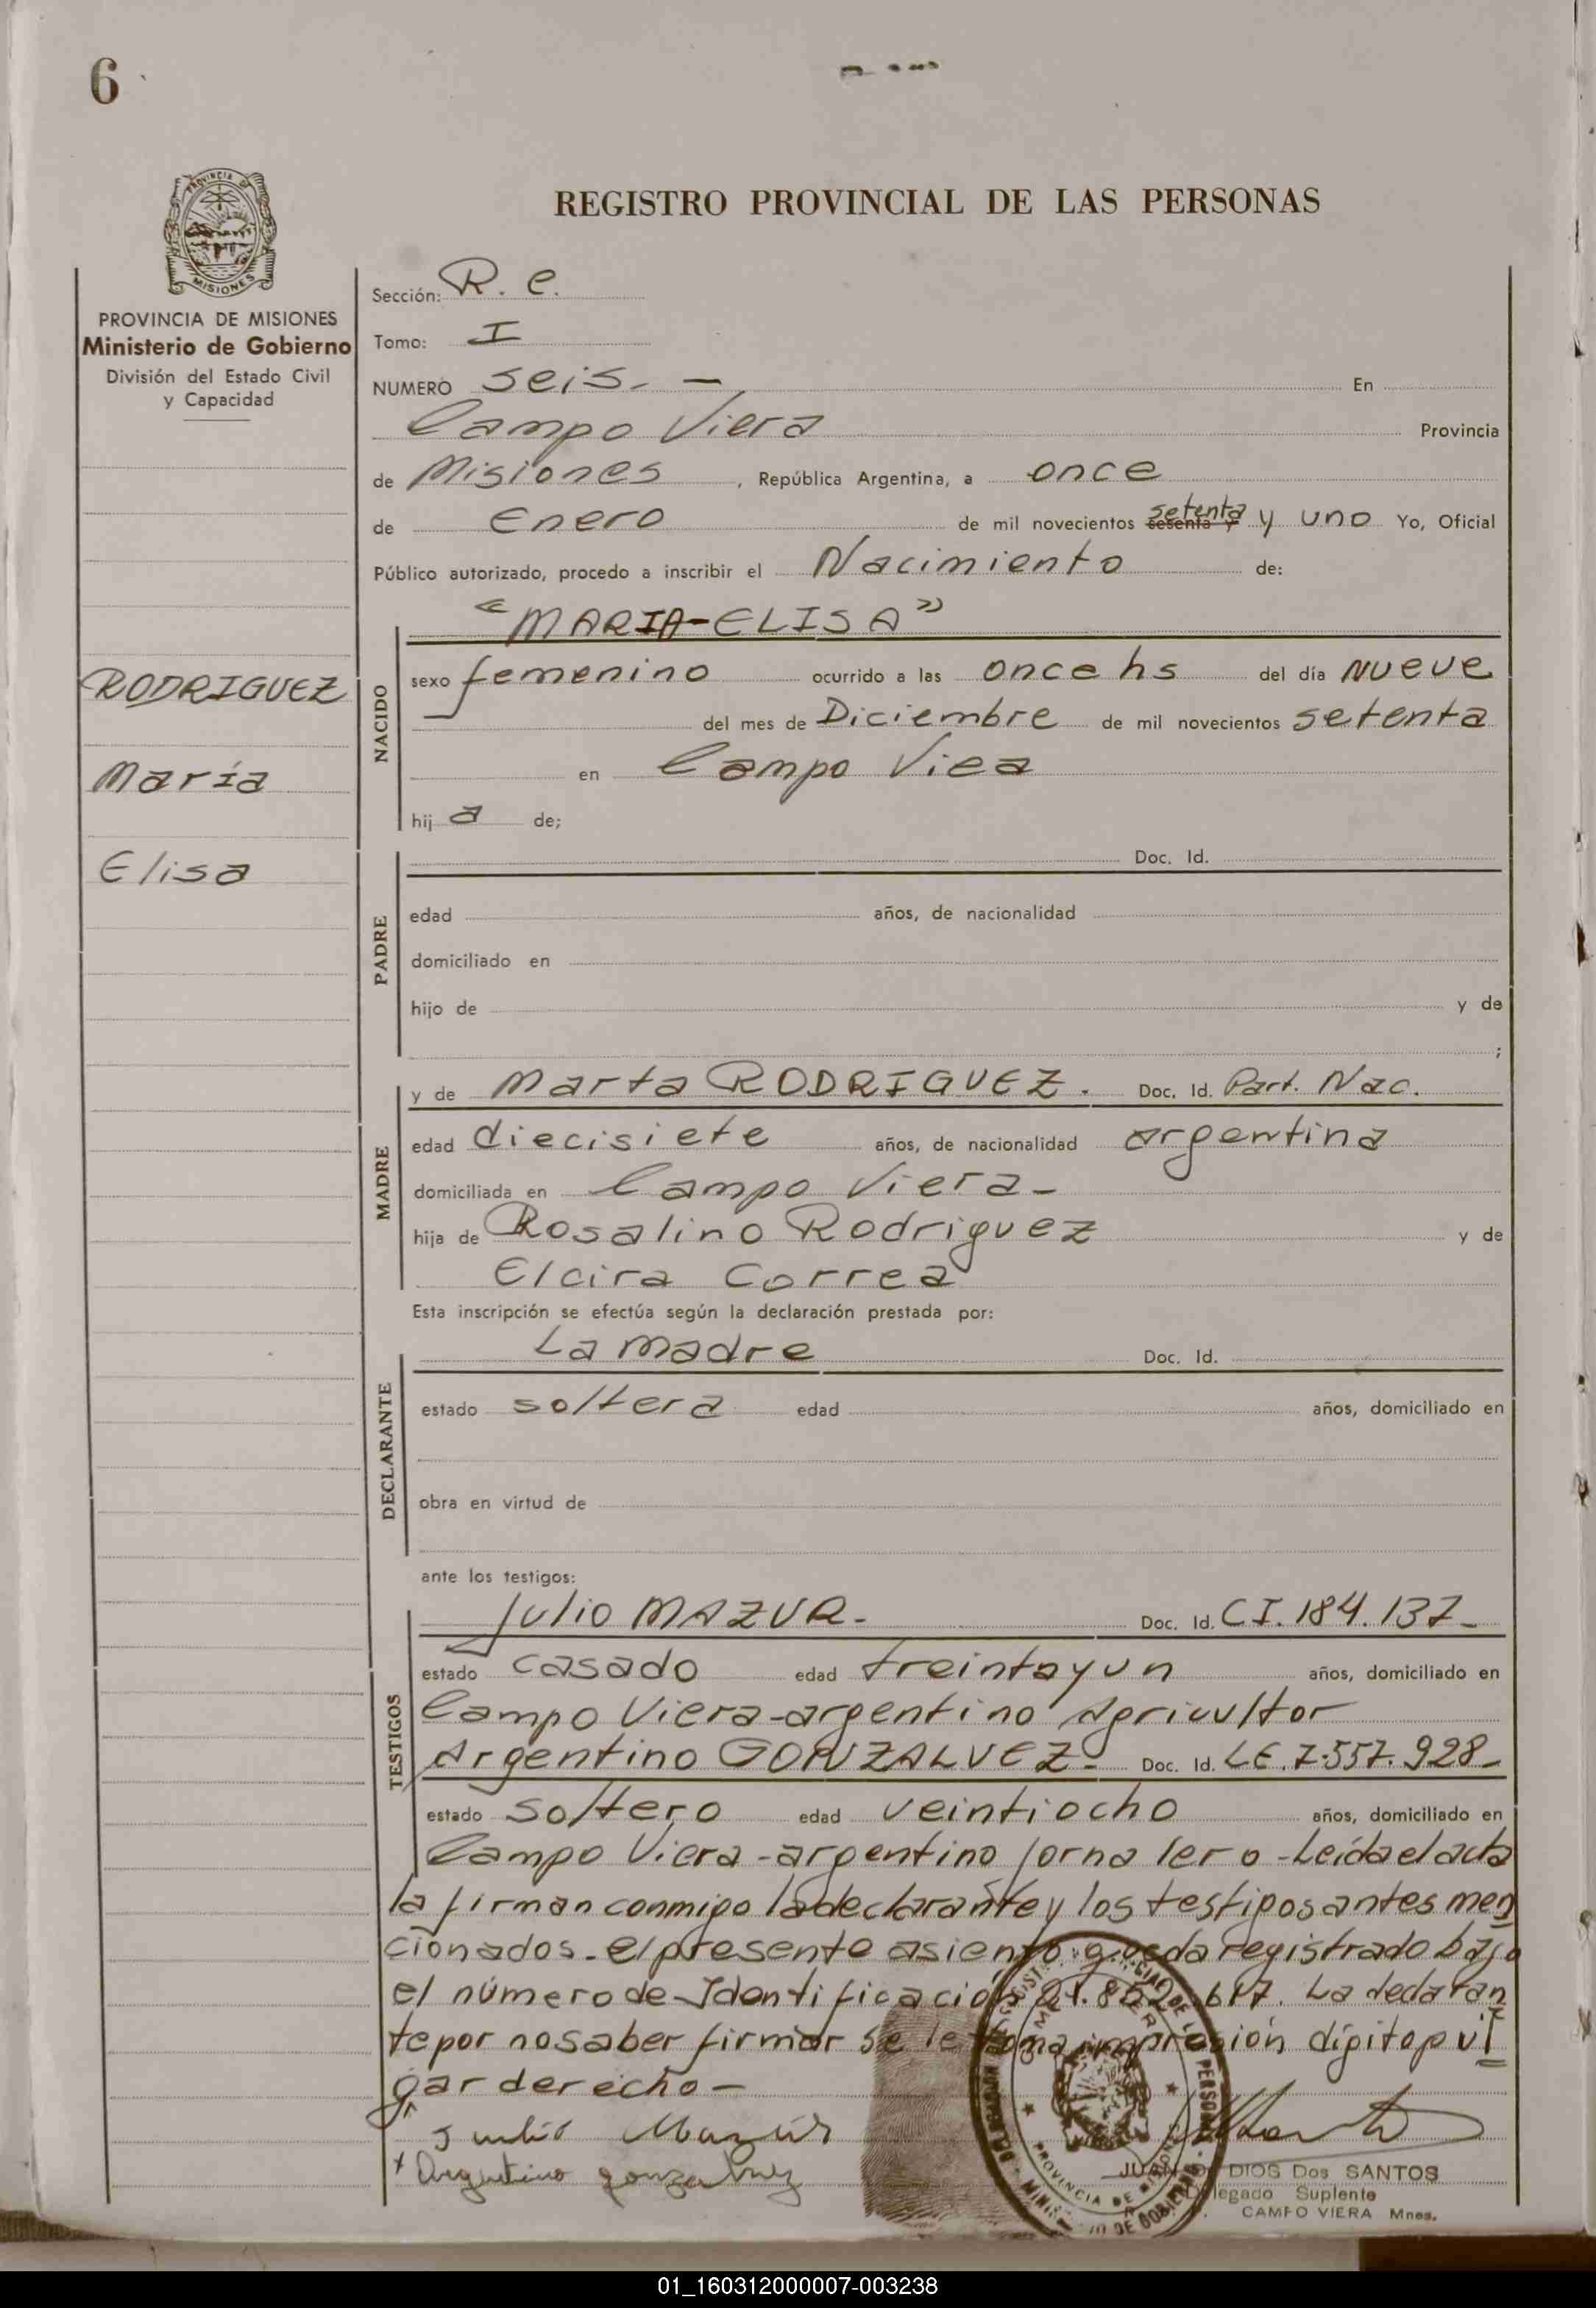 6
REGISTRO PROVINCIAL DE LAS PERSONAS
PROVINCIA DE MISIONES
Ministerio de Gobierno
División del Estado Civil
y Capacidad
RODRIGUEZ
María
Elisa
Sección: R. C.
Tomo: I
NUMERO seis. — En
Campo Viera Provincia
de Misiones, República Argentina, a once
de Enero de mil novecientos sesenta y setenta y uno Yo, Oficial
Público autorizado, procedo a inscribir el Nacimiento de:
"MARIA-ELISA"
NACIDO
sexo femenino ocurrido a las once hs del día nueve
del mes de Diciembre de mil novecientos setenta
en Campo Viea
hij a de;
PADRE
Doc. Id.
edad años, de nacionalidad
domiciliado en
hijo de y de
;
MADRE
y de Marta RODRIGUEZ. Doc. Id. Part. Nac.
edad diecisiete años, de nacionalidad argentina
domiciliada en Campo Viera-
hija de Rosalino Rodriguez y de
Elcira Correa
Esta inscripción se efectúa según la declaración prestada por:
DECLARANTE
La madre Doc. Id.
estado soltera edad años, domiciliado en
obra en virtud de
ante los testigos:
TESTIGOS
Julio MAZUR.- Doc. Id. CI. 184.137-
estado casado edad treintayun años, domiciliado en
Campo Viera-argentino Agricultor
Argentino GONZALVEZ.- Doc. Id. LE. 7.557.928-
estado soltero edad veintiocho años, domiciliado en
Campo Viera-argentino jornalero-Leída el acta
la firman conmigo la declarante y los testigos antes men
cionados. el presente asiento queda registrado bajo
el número de Identificación La declaran
te por no saber firmar se le toma impresión dígito pul
gar derecho-
Julio Mazur
Argentino Gonzalvez
JUAN DE DIOS Dos SANTOS
Delegado Suplente
CAMPO VIERA Mnes.
01_160312000007-003238